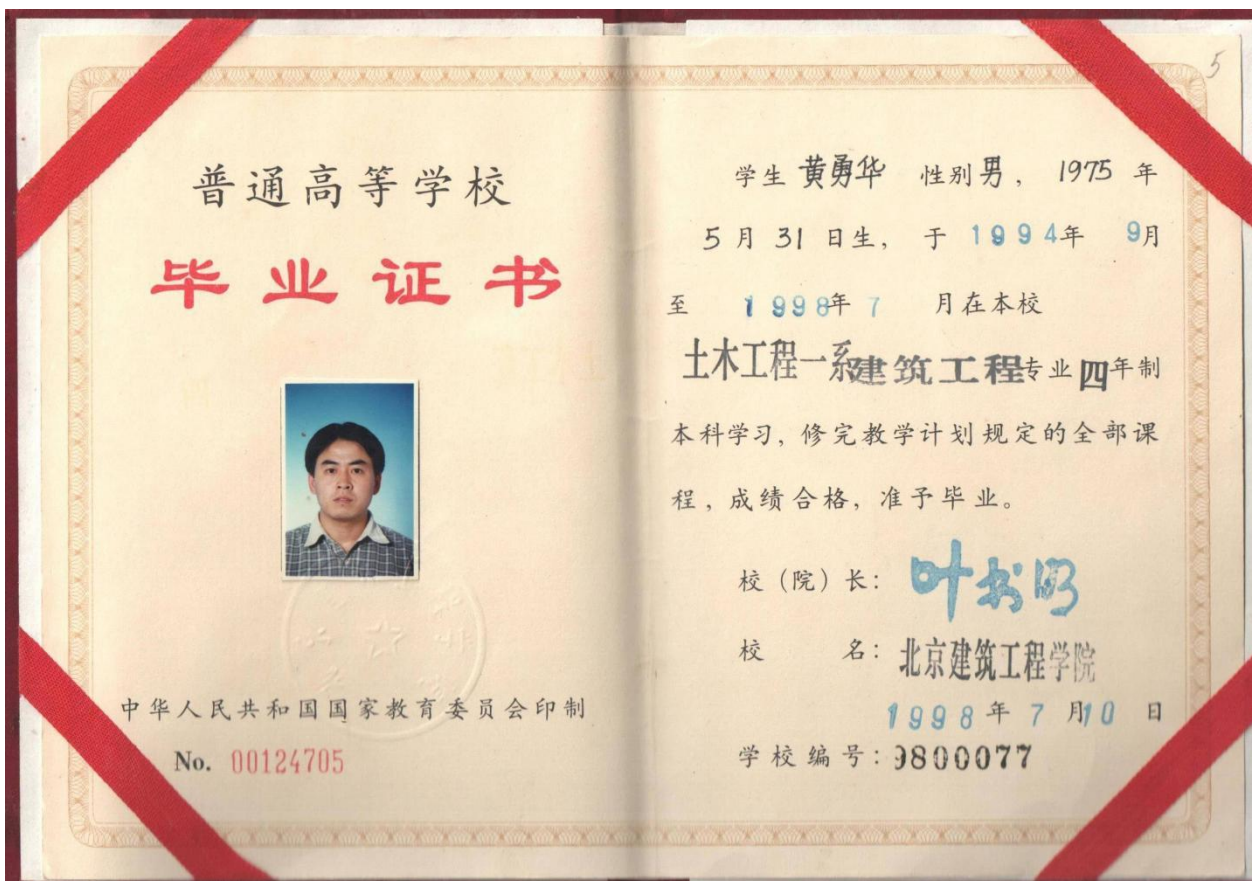 普通高等学校
毕业证书
中华人民共和国国家教育委员会印制
No. 00124705
5
学生 黄勇华 性别 男, 1975 年
5 月 31 日生, 于 1994年 9月
至 1998年 7 月在本校
土木工程一系建筑工程专业四年制
本科学习, 修完教学计划规定的全部课
程, 成绩合格, 准予毕业。
校（院）长: 叶书明
校 名: 北京建筑工程学院
1998 年 7 月10 日
学校编号: 9800077